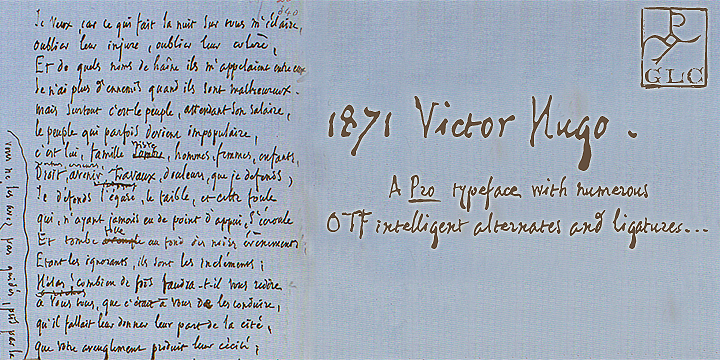 Je veux, car ce qui fait la nuit sur tous m'éclaire,
oublier leur injure, oublier leur colère,
Et de quels noms de haine ils m'appelaient entre eux
Je n'ai plus d'ennemis quand ils sont malheureux.
mais surtout c'est le peuple, attendant son salaire,
le peuple qui parfois devient impopulaire,
triste
c'est lui, famille, hommes, femmes, enfants,
Droit, avenir, travaux, douleurs, que je défends ;
Je défends l'égaré, le faible, et cette foule
qui, n'ayant jamais eu de point d'appui, s'écroule
folle
Et tombe au fond des noirs événements
Etant les ignorants, ils sont les incléments ;
Hélas ! combien de fois faudra-t-il vous redire
à vous tous, que c'était à vous de les conduire,
qu'il fallait leur donner leur part de la cité,
que votre aveuglement produit leur cécité ;
vous ne les avez pas guidés, pris par la
1871 Victor Hugo.
A Pro typeface with numerous
OTF intelligent alternates and ligatures...
GLC